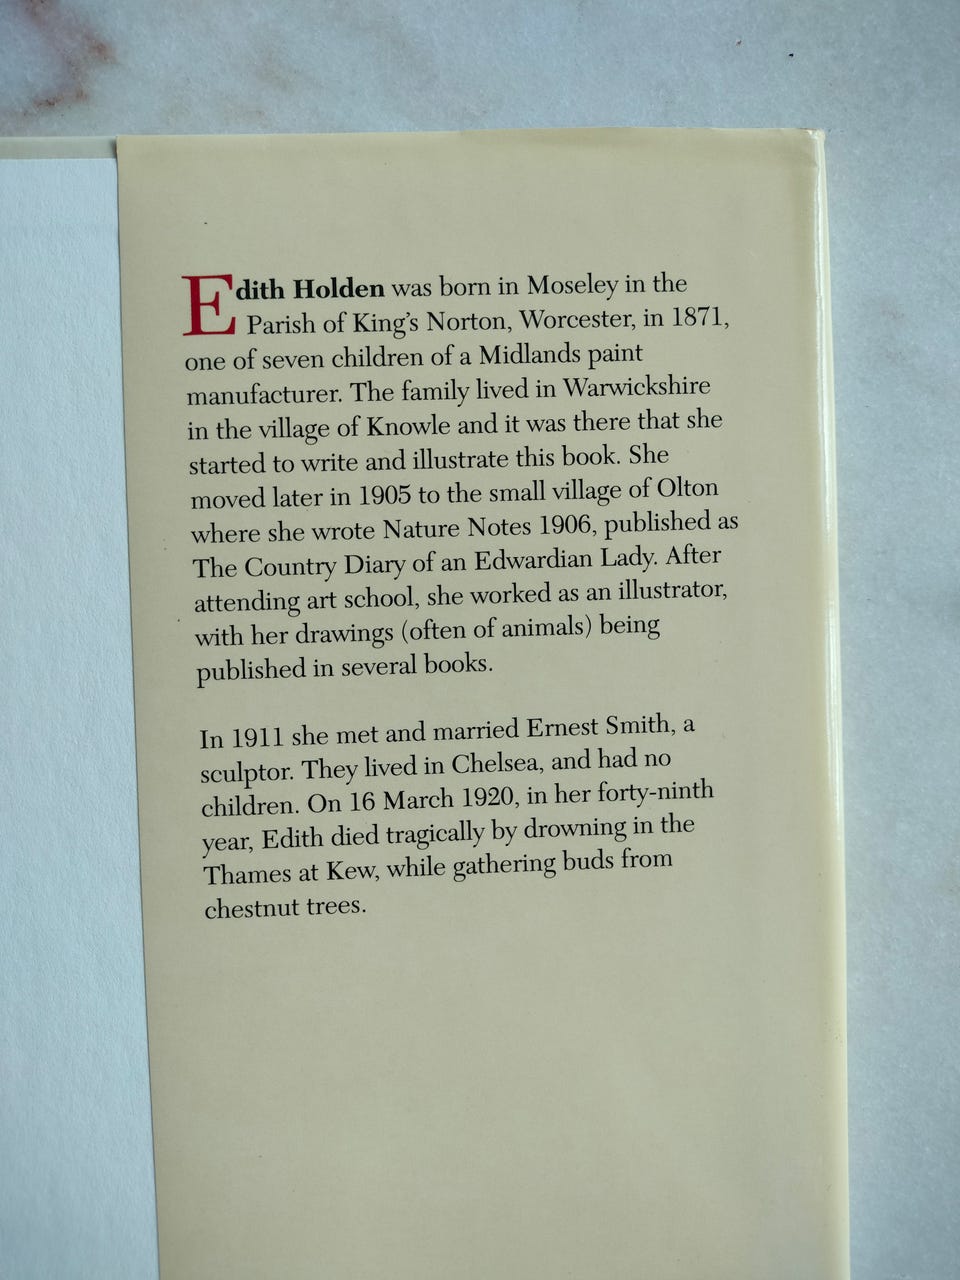 Edith Holden was born in Moseley in the
Parish of King's Norton, Worcester, in 1871,
one of seven children of a Midlands paint
manufacturer. The family lived in Warwickshire
in the village of Knowle and it was there that she
started to write and illustrate this book. She
moved later in 1905 to the small village of Olton
where she wrote Nature Notes 1906, published as
The Country Diary of an Edwardian Lady. After
attending art school, she worked as an illustrator,
with her drawings (often of animals) being
published in several books.
In 1911 she met and married Ernest Smith, a
sculptor. They lived in Chelsea, and had no
children. On 16 March 1920, in her forty-ninth
year, Edith died tragically by drowning in the
Thames at Kew, while gathering buds from
chestnut trees.